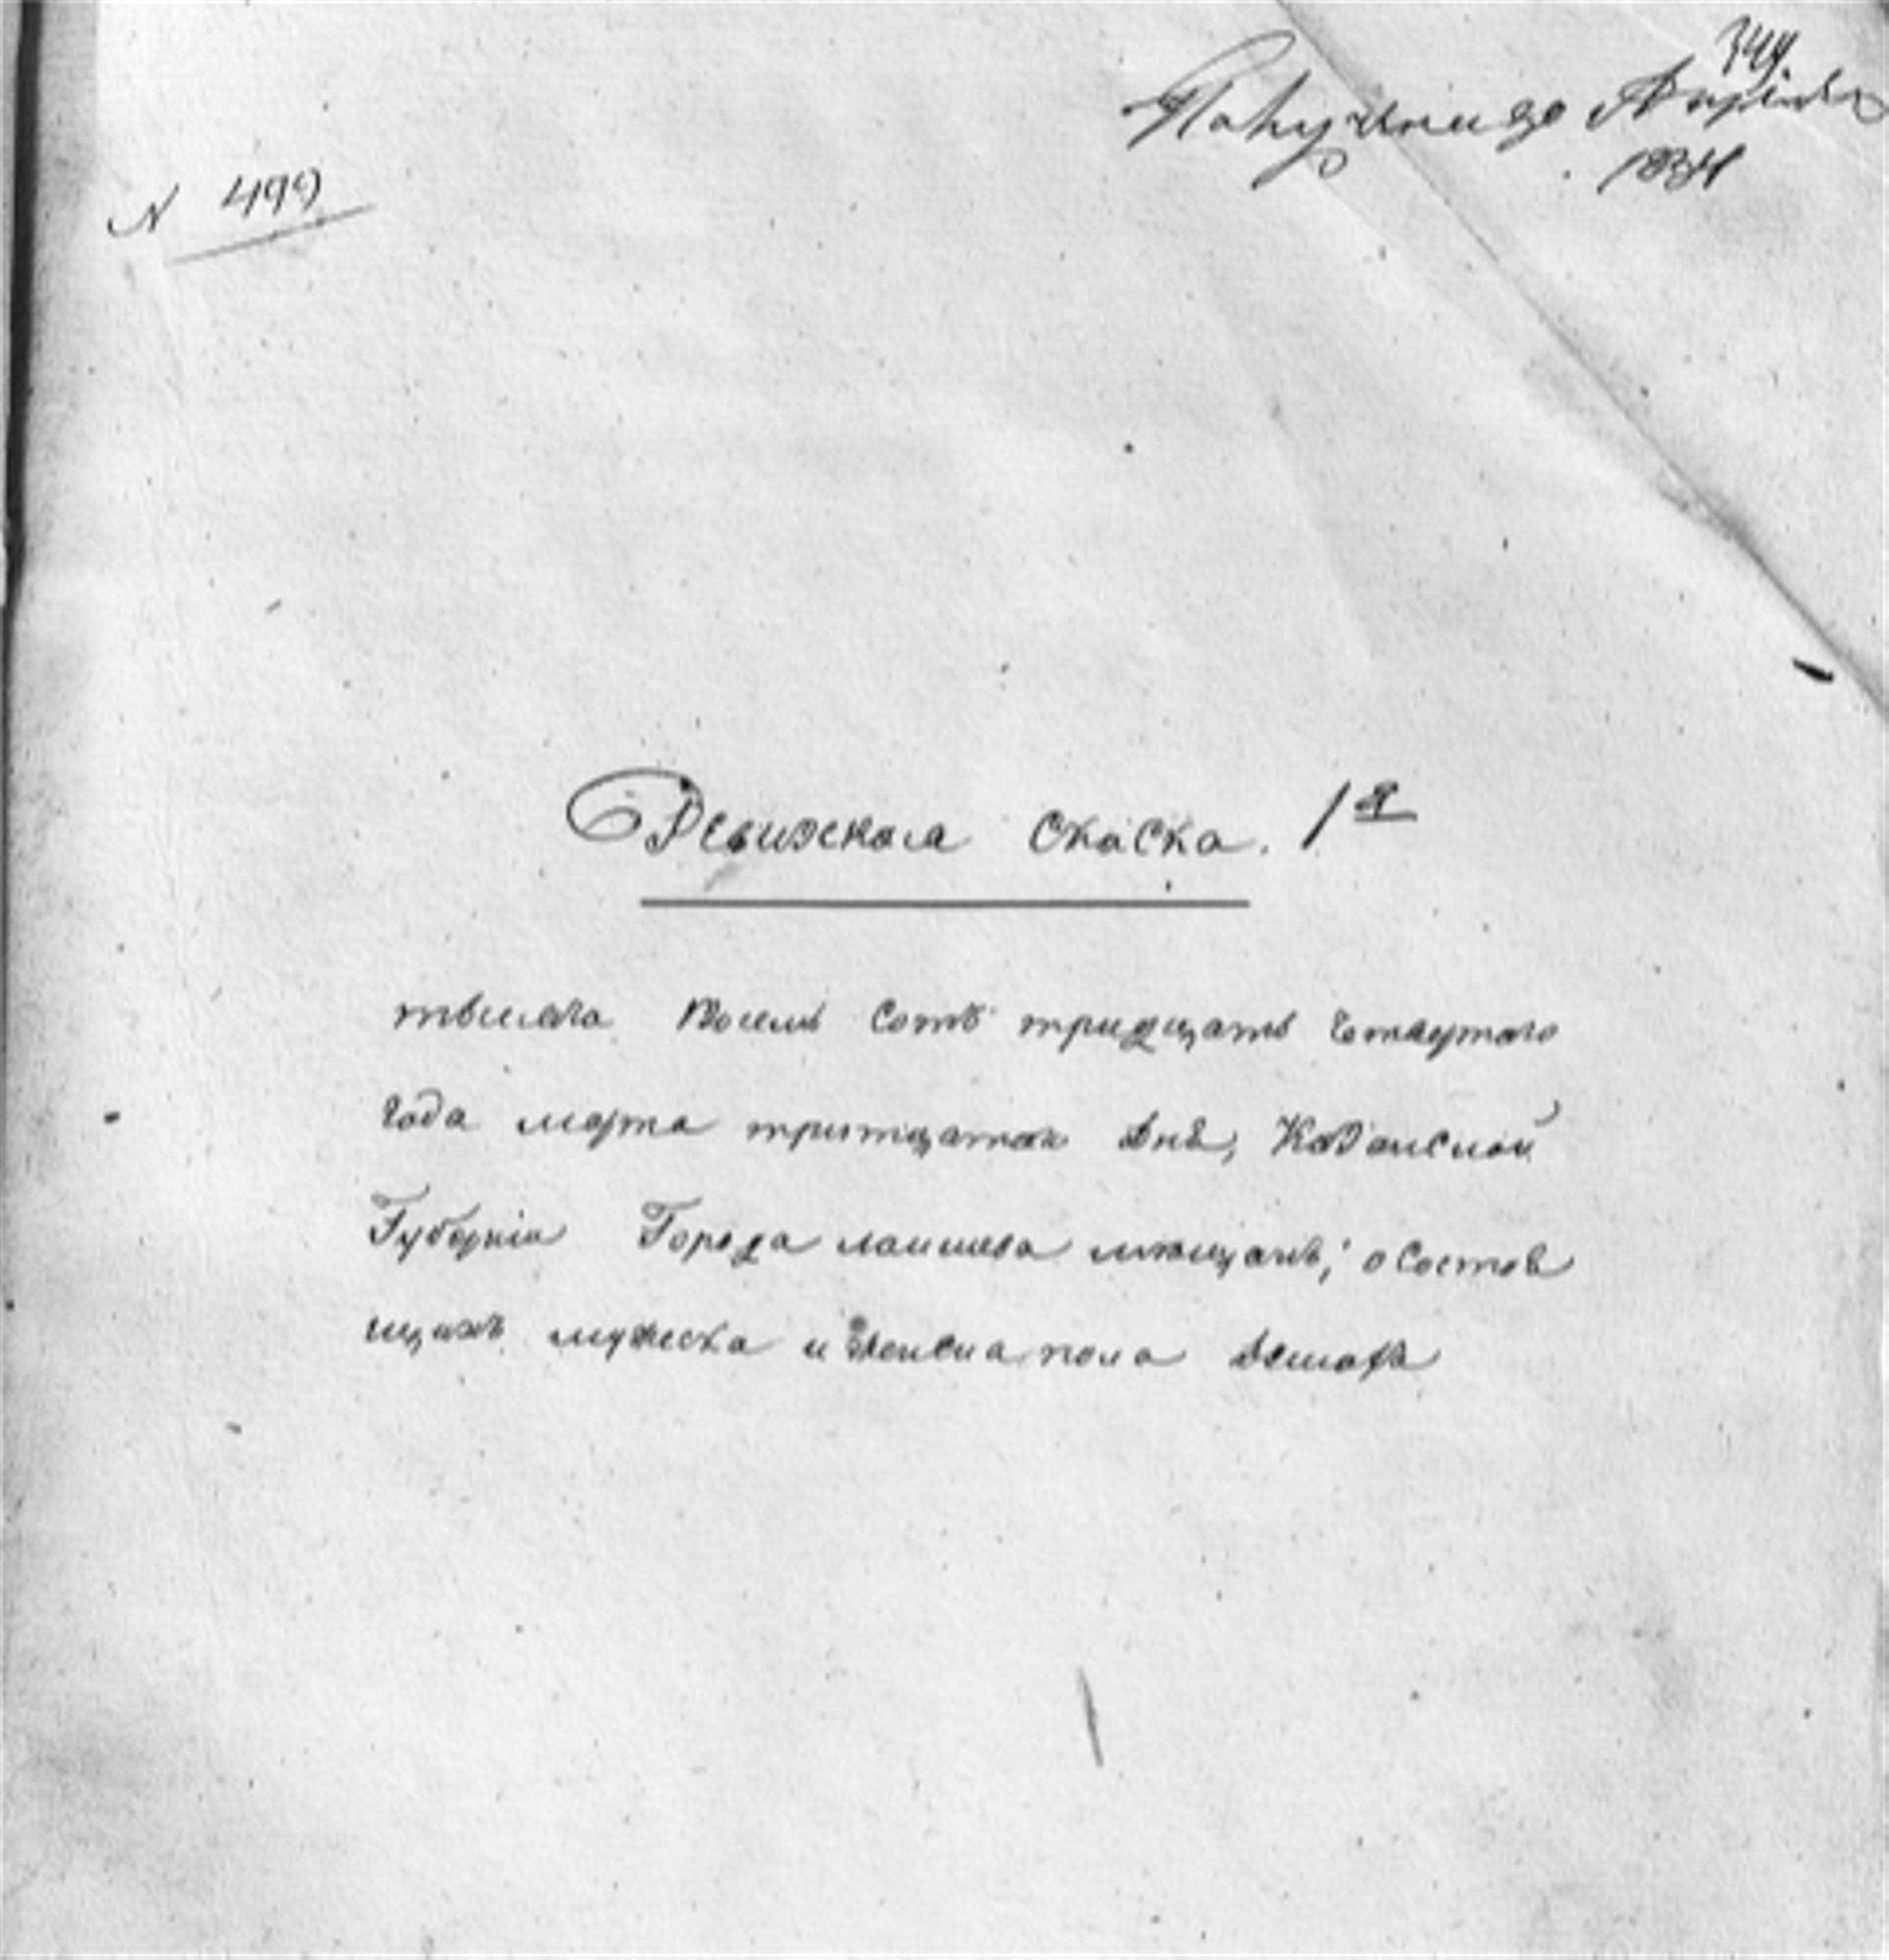 349
Получена 30 Апреля
1834
N 499
Ревижская скаска. 1я
тысяча восемь сотъ тридцать четвертого
года марта тритцатаго дня, Казанской
Губерніи Города лаишева мѣщанъ, о состоя
щихъ мужеска и женска пола душахъ